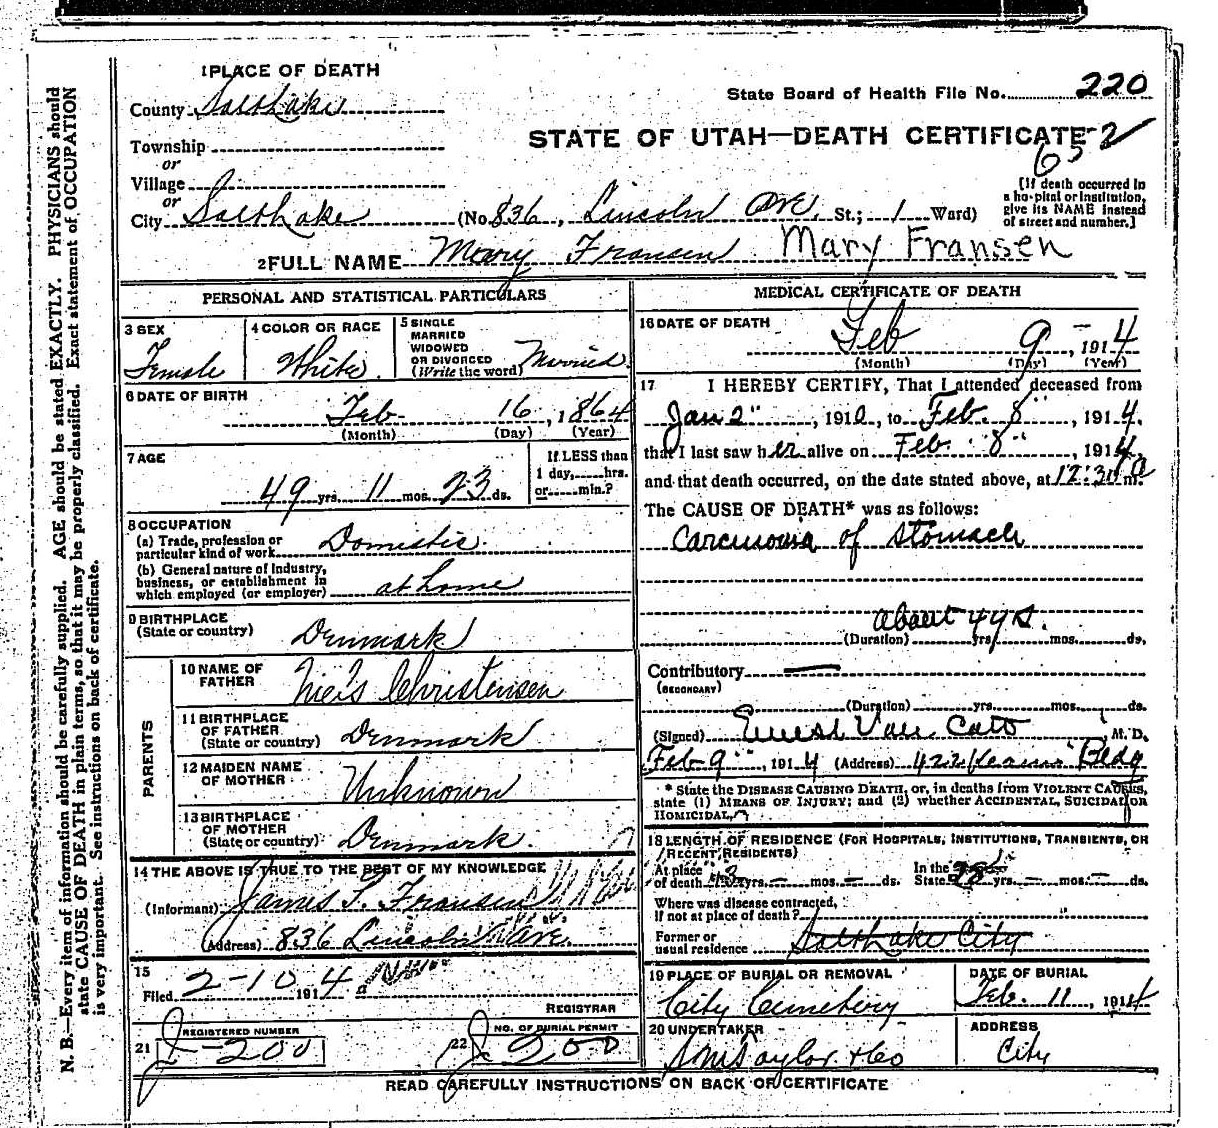 1 PLACE OF DEATH
County Salt Lake
State Board of Health File No. 220
Township
STATE OF UTAH—DEATH CERTIFICATE
or
Village
or
City Salt Lake (No. 836, Lincoln Ave. St.; 1 Ward)
[If death occurred in a hospital or institution, give its NAME instead of street and number.]
2 FULL NAME Mary Fransen Mary Fransen
PERSONAL AND STATISTICAL PARTICULARS
3 SEX
Female
4 COLOR OR RACE
White
5 SINGLE
MARRIED
WIDOWED
OR DIVORCED
(Write the word) Married
6 DATE OF BIRTH
Feb 16, 1864
(Month) (Day) (Year)
7 AGE
49 yrs. 11 mos. 23 ds.
If LESS than
1 day,.....hrs.
or.....min.?
8 OCCUPATION
(a) Trade, profession or
particular kind of work Domestic
(b) General nature of Industry,
business, or establishment in
which employed (or employer) at home
9 BIRTHPLACE
(State or country) Denmark
PARENTS
10 NAME OF
FATHER Niels Christensen
11 BIRTHPLACE
OF FATHER
(State or country) Denmark
12 MAIDEN NAME
OF MOTHER Unknown
13 BIRTHPLACE
OF MOTHER
(State or country) Denmark.
14 THE ABOVE IS TRUE TO THE BEST OF MY KNOWLEDGE
(Informant) James P. Fransen
(Address) 836 Lincoln Ave.
15
Filed 2-10 1914
REGISTRAR
21 REGISTERED NUMBER
J-200
22 NO. OF BURIAL PERMIT
J 200
MEDICAL CERTIFICATE OF DEATH
16 DATE OF DEATH
Feb 9, 1914
(Month) (Day) (Year)
17 I HEREBY CERTIFY, That I attended deceased from
Jan 2", 1910, to Feb. 8", 1914.
that I last saw her alive on Feb. 8", 1914
and that death occurred, on the date stated above, at 12:30 a m.
The CAUSE OF DEATH* was as follows:
Carcinoma of Stomach
about 4 yrs.
(Duration) yrs. mos. ds.
Contributory —
(SECONDARY)
(Duration) yrs. mos. ds.
(Signed) Ernest Van Cott, M. D.
Feb 9", 1914 (Address) 422 Kearns Bldg
* State the DISEASE CAUSING DEATH, or, in deaths from VIOLENT CAUSES,
state (1) MEANS OF INJURY; and (2) whether ACCIDENTAL, SUICIDAL or
HOMICIDAL.
18 LENGTH OF RESIDENCE (FOR HOSPITALS, INSTITUTIONS, TRANSIENTS, OR
RECENT RESIDENTS)
At place In the
of death yrs. — mos. — ds. State yrs. — mos. — ds.
Where was disease contracted,
if not at place of death?
Former or
usual residence Salt Lake City
19 PLACE OF BURIAL OR REMOVAL
City Cemetery
DATE OF BURIAL
Feb. 11, 1914
20 UNDERTAKER
S M Taylor & Co
ADDRESS
City
READ CAREFULLY INSTRUCTIONS ON BACK OF CERTIFICATE
N. B.—Every item of information should be carefully supplied. AGE should be stated EXACTLY. PHYSICIANS should
state CAUSE OF DEATH in plain terms, so that it may be properly classified. Exact statement of OCCUPATION
is very important. See instructions on back of certificate.